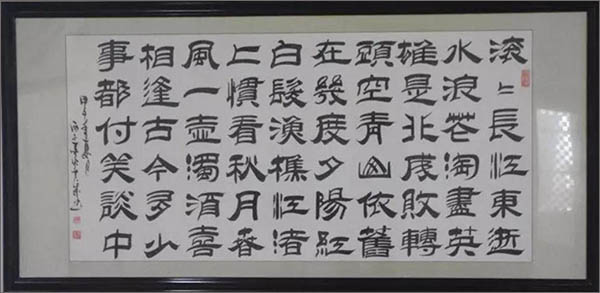 滚〻長江東逝
水浪花淘盡英
雄是非成敗轉
頭空青山依舊
在幾度夕陽紅
白髮漁樵江渚
上慣看秋月春
風一壺濁酒喜
相逢古今多少
事都付笑談中
甲午年夏月